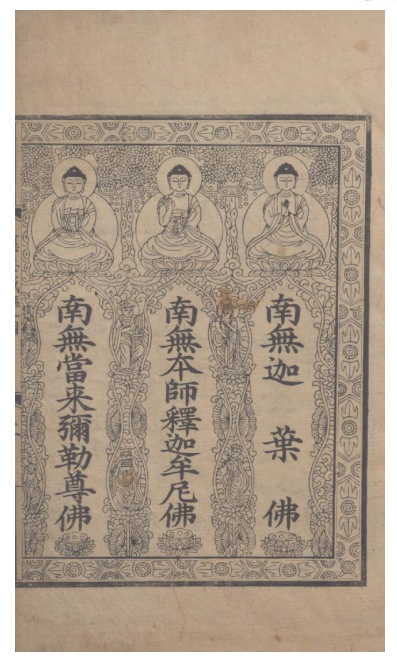 南無迦葉佛
南無本師釋迦牟尼佛
南無當來彌勒尊佛